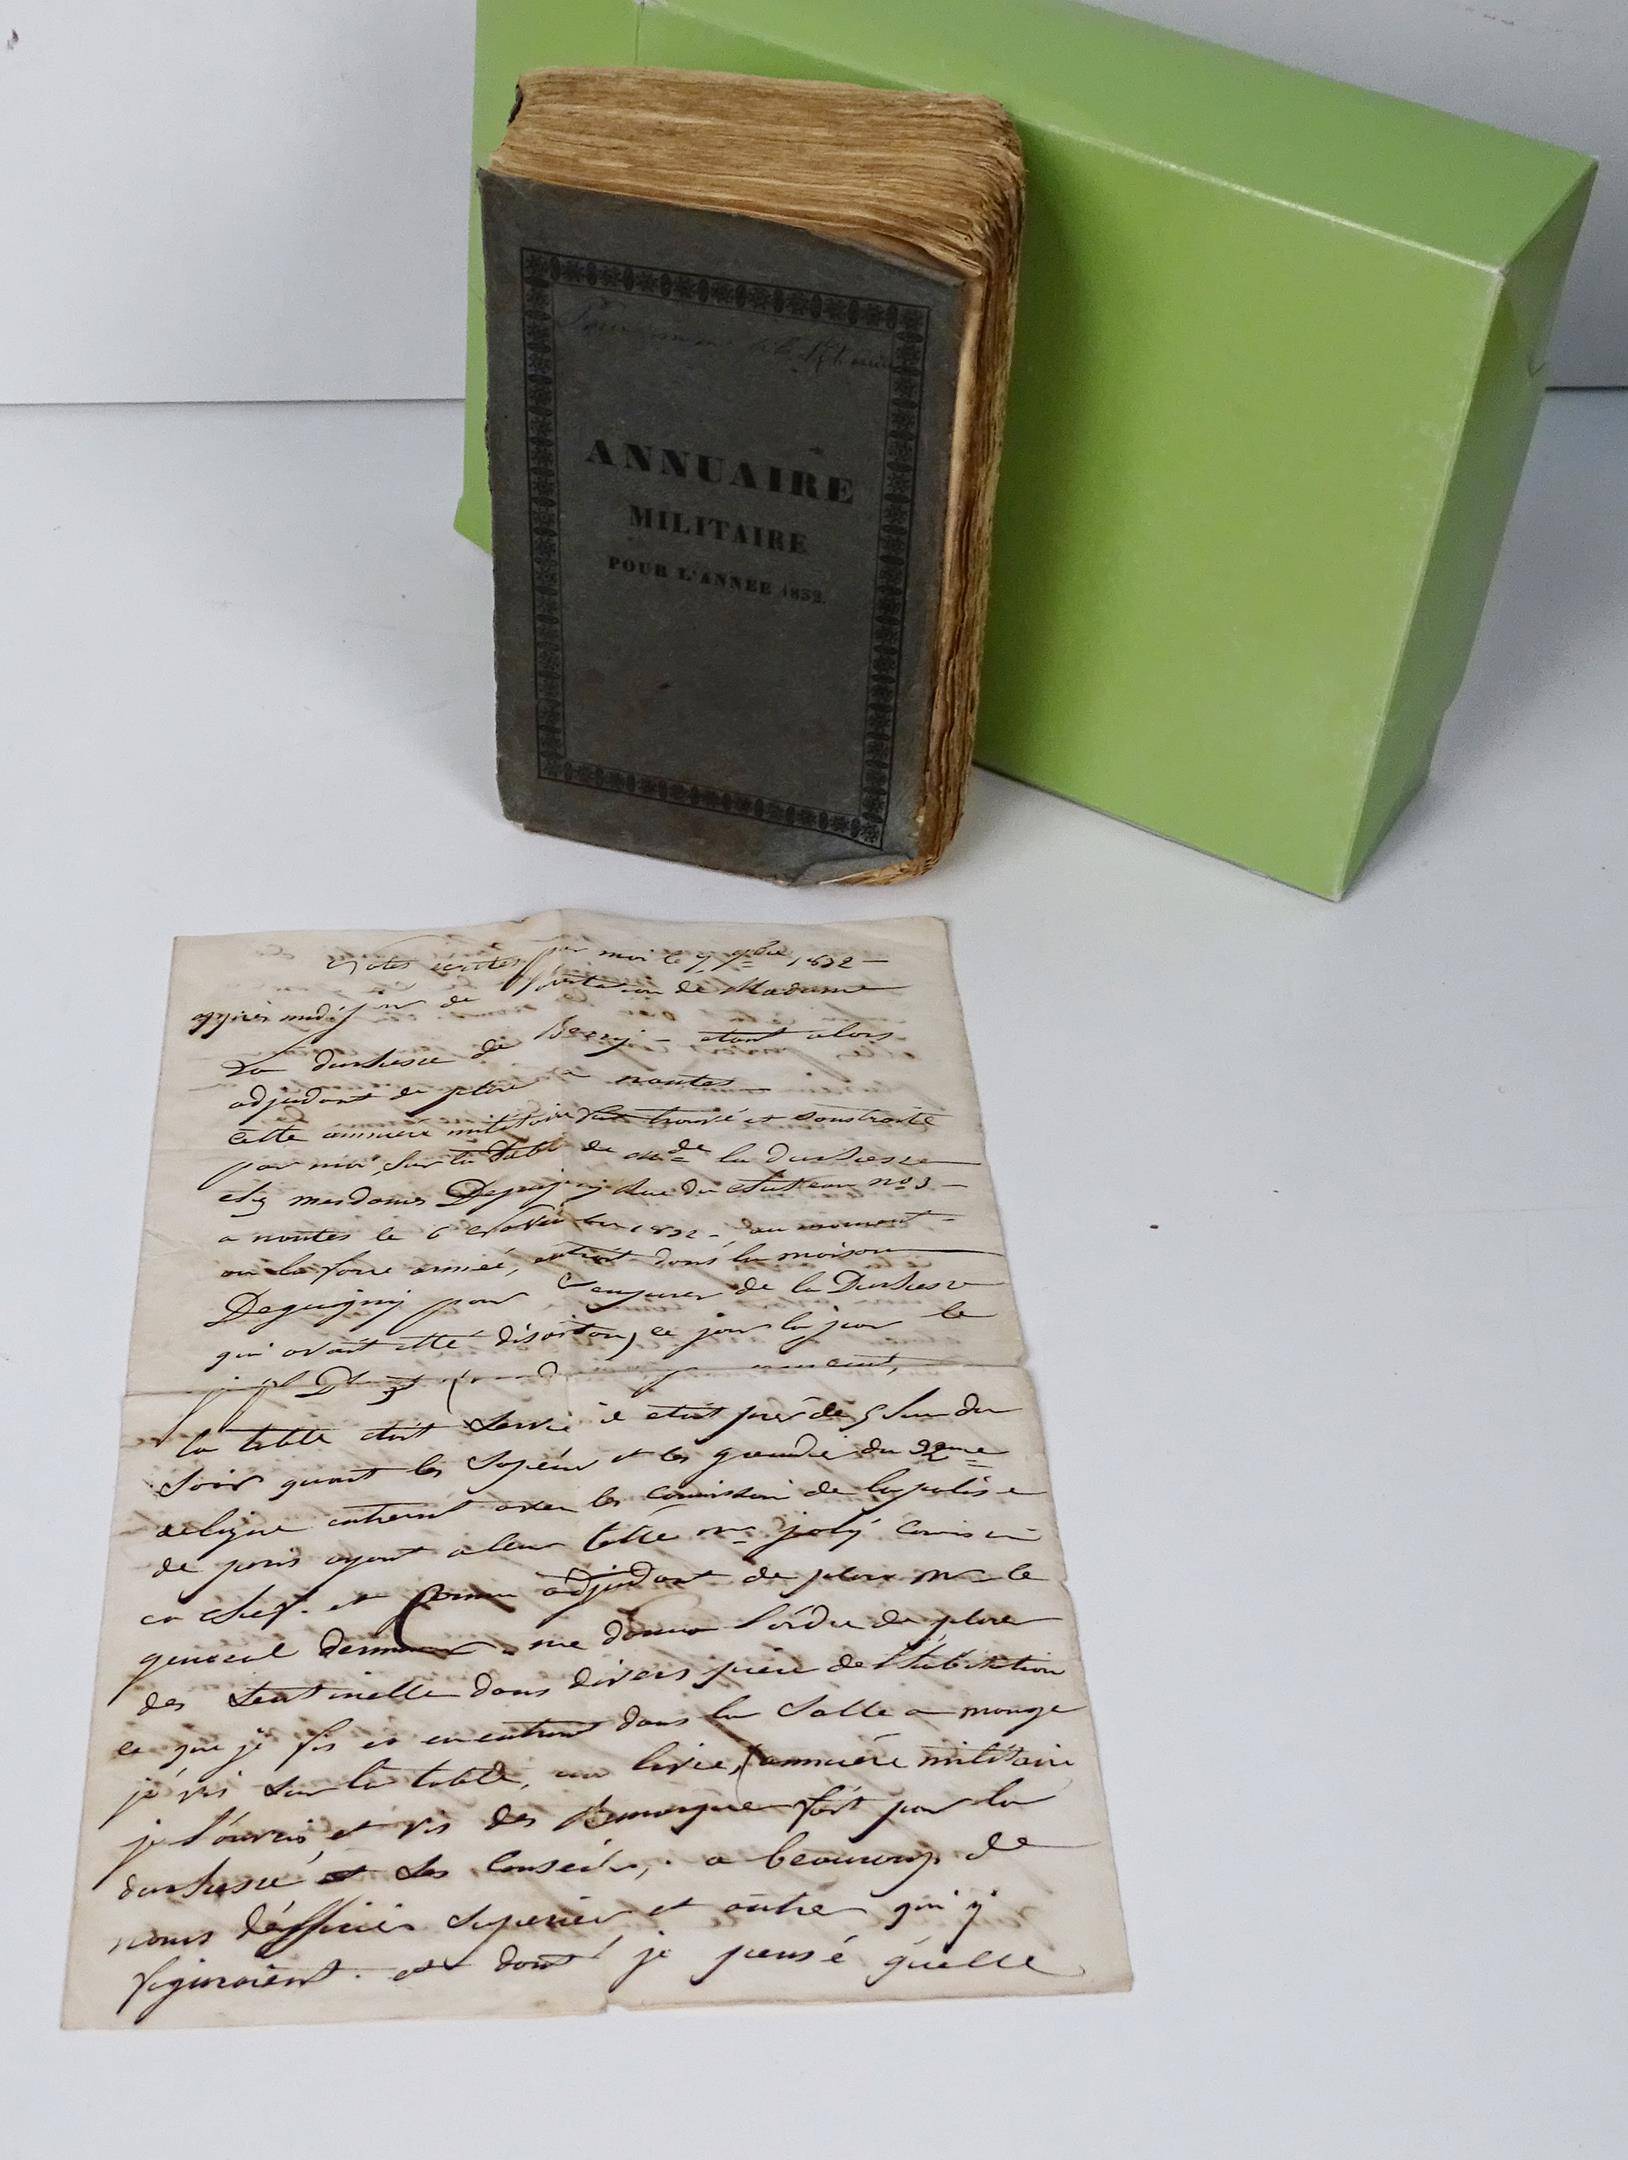 ANNUAIRE
MILITAIRE
POUR L'ANNEE 1832.
Notes ecrites par moi le 7 9bre 1832 —
de Madame
La duchesse de Berry — etant alors
adjudant de place a nantes —
Cette annuere militaire fut trouvé et soustraite
par moi, sur la table de Mde la duchesse
chez mesdames Deguigny Rue du chateau no 3 —
a nantes le 6 Novembre 1832 — au moment —
ou la force armée, entrat dans la maison
Deguigny pour s'emparer de la Duchesse
qui avait etté
la table etait servie il etait près de 5 heur du
Soir quant les Sapeur et les grenadié du 32eme
de ligne entrerent avec les comission de la polise
de paris ayant a leur tette Mr joly Comis
en chef. et comme adjudant de place Mr le
general dermoncourt me donna l'ordre de placer
des Sentinelle dans divers piece de l'habitation
ce que je fis et en entrant dans la Salle a mange
je vis sur la table, un livre, (annuére militaire
je l'ouvris, et vis des Remarque fait par la
duchesse et ses Conseiller, a beaucoup de
noms d'officier Superieur et autre qui y
figuraient. et dont je pensé quelle